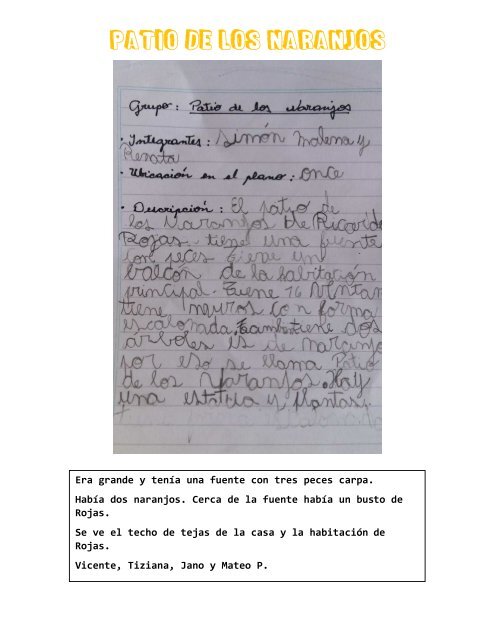 PATIO DE LOS NARANJOS
Grupo: Patio de los naranjos
• Integrantes: Simón Malena y
Renata
• Ubicación en el plano: Once
• Descripción: El patio de
los Naranjos de Ricardo
Rojas tiene una fuente
con peces tiene un
balcón de la habitación
principal. Tiene 16 Ventan
tiene muros con forma
escalonada. también tiene dos
árboles es de naranjo
por eso se llama Patio
de los Naranjos. Hay
una estatua y plantas.
Era grande y tenía una fuente con tres peces carpa.
Había dos naranjos. Cerca de la fuente había un busto de
Rojas.
Se ve el techo de tejas de la casa y la habitación de
Rojas.
Vicente, Tiziana, Jano y Mateo P.